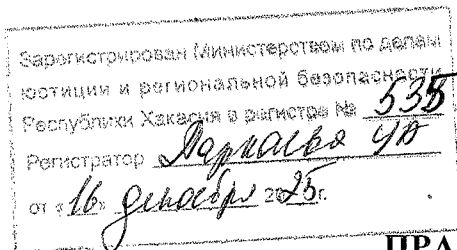 Зарегистрирован Министерством по делам
юстиции и региональной безопасности
Республики Хакасия в регистре № 535
Регистратор
от «16» декабря 2025г.
ПРА